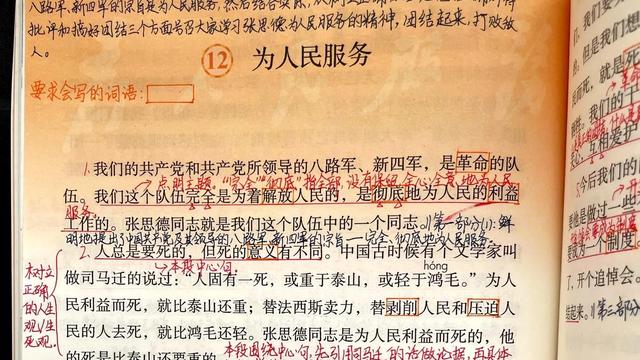 八路军、新四军的宗旨是为人民服务,然后结合实际,从
批评和搞好团结三个方面号召大家学习张思德为人民服务的精神,团结起来,打败敌
人。
12 为人民服务
要求会写的词语:
1.我们的共产党和共产党所领导的八路军、新四军,是革命的队
点明主题。“完全”“彻底”指全部,没有保留,全心全意地为人民
伍。我们这个队伍完全是为着解放人民的,是彻底地为人民的利益
服务。
工作的。张思德同志就是我们这个队伍中的一个同志。
//第一部分(1):鲜
明地提出了中国共产党及其领导的八路军、新四军的宗旨——完全、彻底地为人民服务。
2.人总是要死的,但死的意义有不同。中国古时候有个文学家叫
本段中心句。
hóng
做司马迁的说过:“人固有一死,或重于泰山,或轻于鸿毛。”为人
民利益而死,就比泰山还重;替法西斯卖力,替剥削人民和压迫人
民的人去死,就比鸿毛还轻。张思德同志是为人民利益而死的,他
的死是比泰山还要重的。
本段围绕中心句,先引用司马迁的话做论据,再具体
树立
正确
的人生
观、生
死观。
我们要
但是我们想
而死,就是死
革命
我们的干
互相爱护
3.今后我们的
要他是做过一些
要为一个制度
了,开个追悼会。
结起来。//第三部分